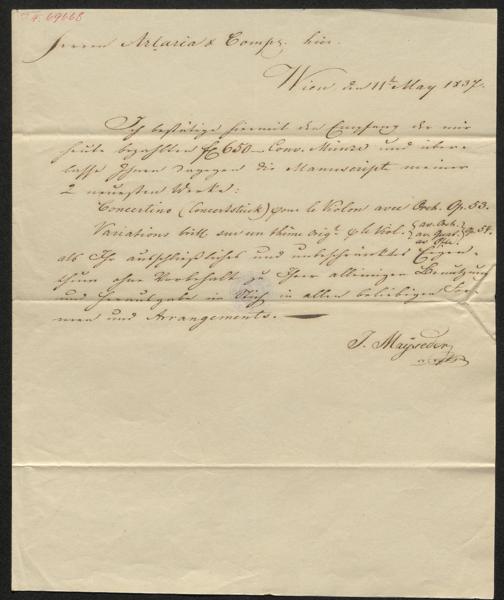 4. 69668
Herrn Artaria & Comp. hier.
Wien den 11t May 1837.
Ich bestätige hiermit den Empfang der mir
heute bezahlten f 650 Conv. Münze und über-
lasse Ihnen dagegen die Manuscripte meiner
2 neuesten Werke:
Concertino (Concertstück) pour le Violon avec Orch. Op. 53.
Variations brill. sur un thême orig. p le Viol. av. Orch. Op 54.
av Quat.
av Pfte.
als Ihr ausschließliches und unbeschränktes Eigen-
thum ohne Vorbehalt zu Ihrer alleinigen Benützung
und Herausgabe im Stich in allen beliebigen For-
men und Arrangements.
J. Mayseder